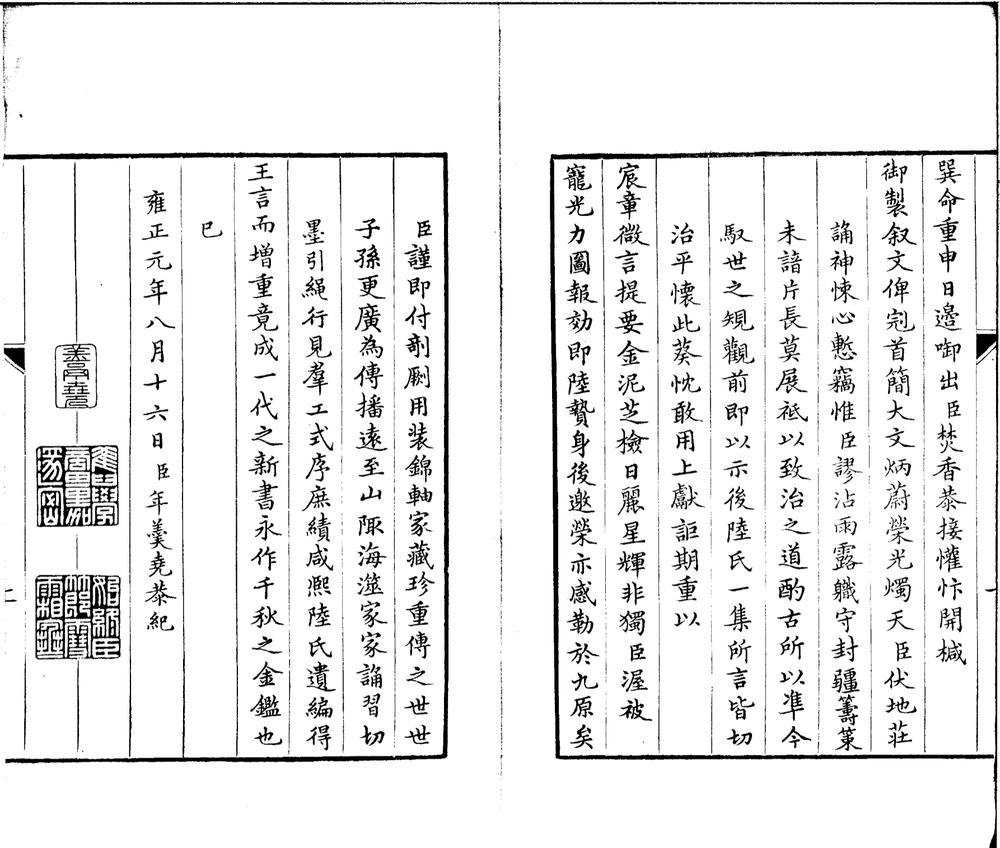 巽命重申日邉啣出臣焚香恭接懽忭開椷
御製叙文俾冠首簡大文炳蔚榮光燭天臣伏地莊
誦神悚心慙竊惟臣謬沾雨露職守封疆籌策
未諳片長莫展祇以致治之道酌古所以凖今
馭世之規觀前即以示後陸氏一集所言皆切
治平懷此葵忱敢用上獻詎期重以
宸章微言提要金泥芝檢日麗星輝非獨臣渥被
寵光力圖報効即陸贄身後邀榮亦感勒於九原矣
臣謹即付剞劂用装錦軸家藏珍重傳之世世
子孫更廣為傳播遠至山陬海澨家家誦習切
墨引繩行見羣工式序庶績咸熙陸氏遺編得
王言而增重竟成一代之新書永作千秋之金鑑也
已
雍正元年八月十六日臣年羹堯恭紀